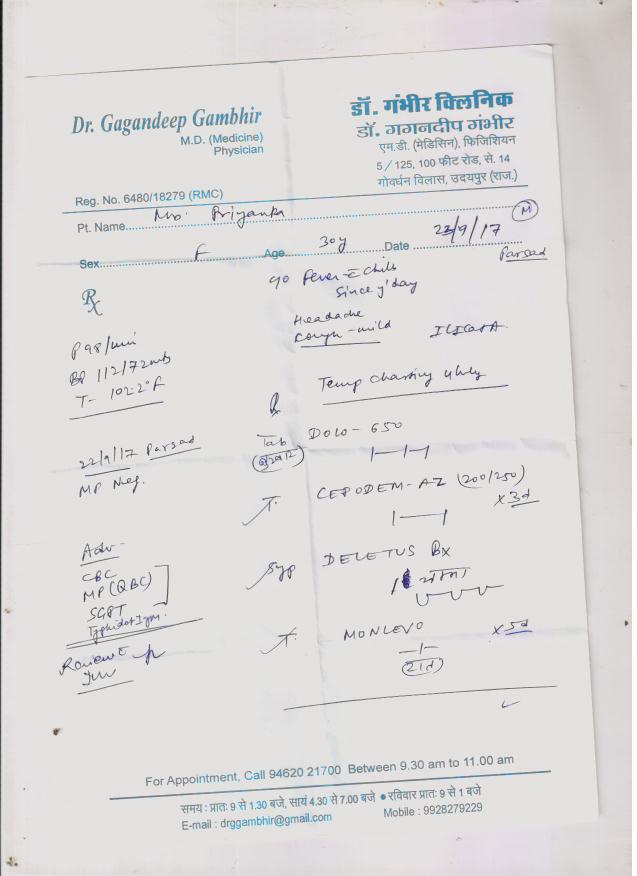 Dr. Gagandeep Gambhir
M.D. (Medicine)
Physician
डॉ. गंभीर क्लिनिक
डॉ. गगनदीप गंभीर
एम.डी. (मेडिसिन), फिजिशियन
5/125, 100 फीट रोड, से. 14
गोवर्धन विलास, उदयपुर (राज.)
Reg. No. 6480/18279 (RMC)
Pt. Name Mrs. Priyanka
M
Sex F Age 30y Date 23/9/17
Parsad
℞
Fever c̄ chills
Since y'day
Headache
Cough - mild
P 98/min
BP 112/72
T- 102.2°F
Temp charting 4hly
22/9/17 Parsad
MP Neg.
Tab DOLO-650
(बुखार)
T. CEPODEM-AZ (200/250)
x 3d
Adv-
CBC
MP (QBC)
SGPT
Typhidot Igm.
Syp DELETUS Bx
1 चम्मच
Review c̄
T. MONLEVO x 5d
(रात)
For Appointment, Call 94620 21700 Between 9.30 am to 11.00 am
समय : प्रातः 9 से 1.30 बजे, सायं 4.30 से 7.00 बजे ● रविवार प्रातः 9 से 1 बजे
E-mail : drggambhir@gmail.com Mobile : 9928279229